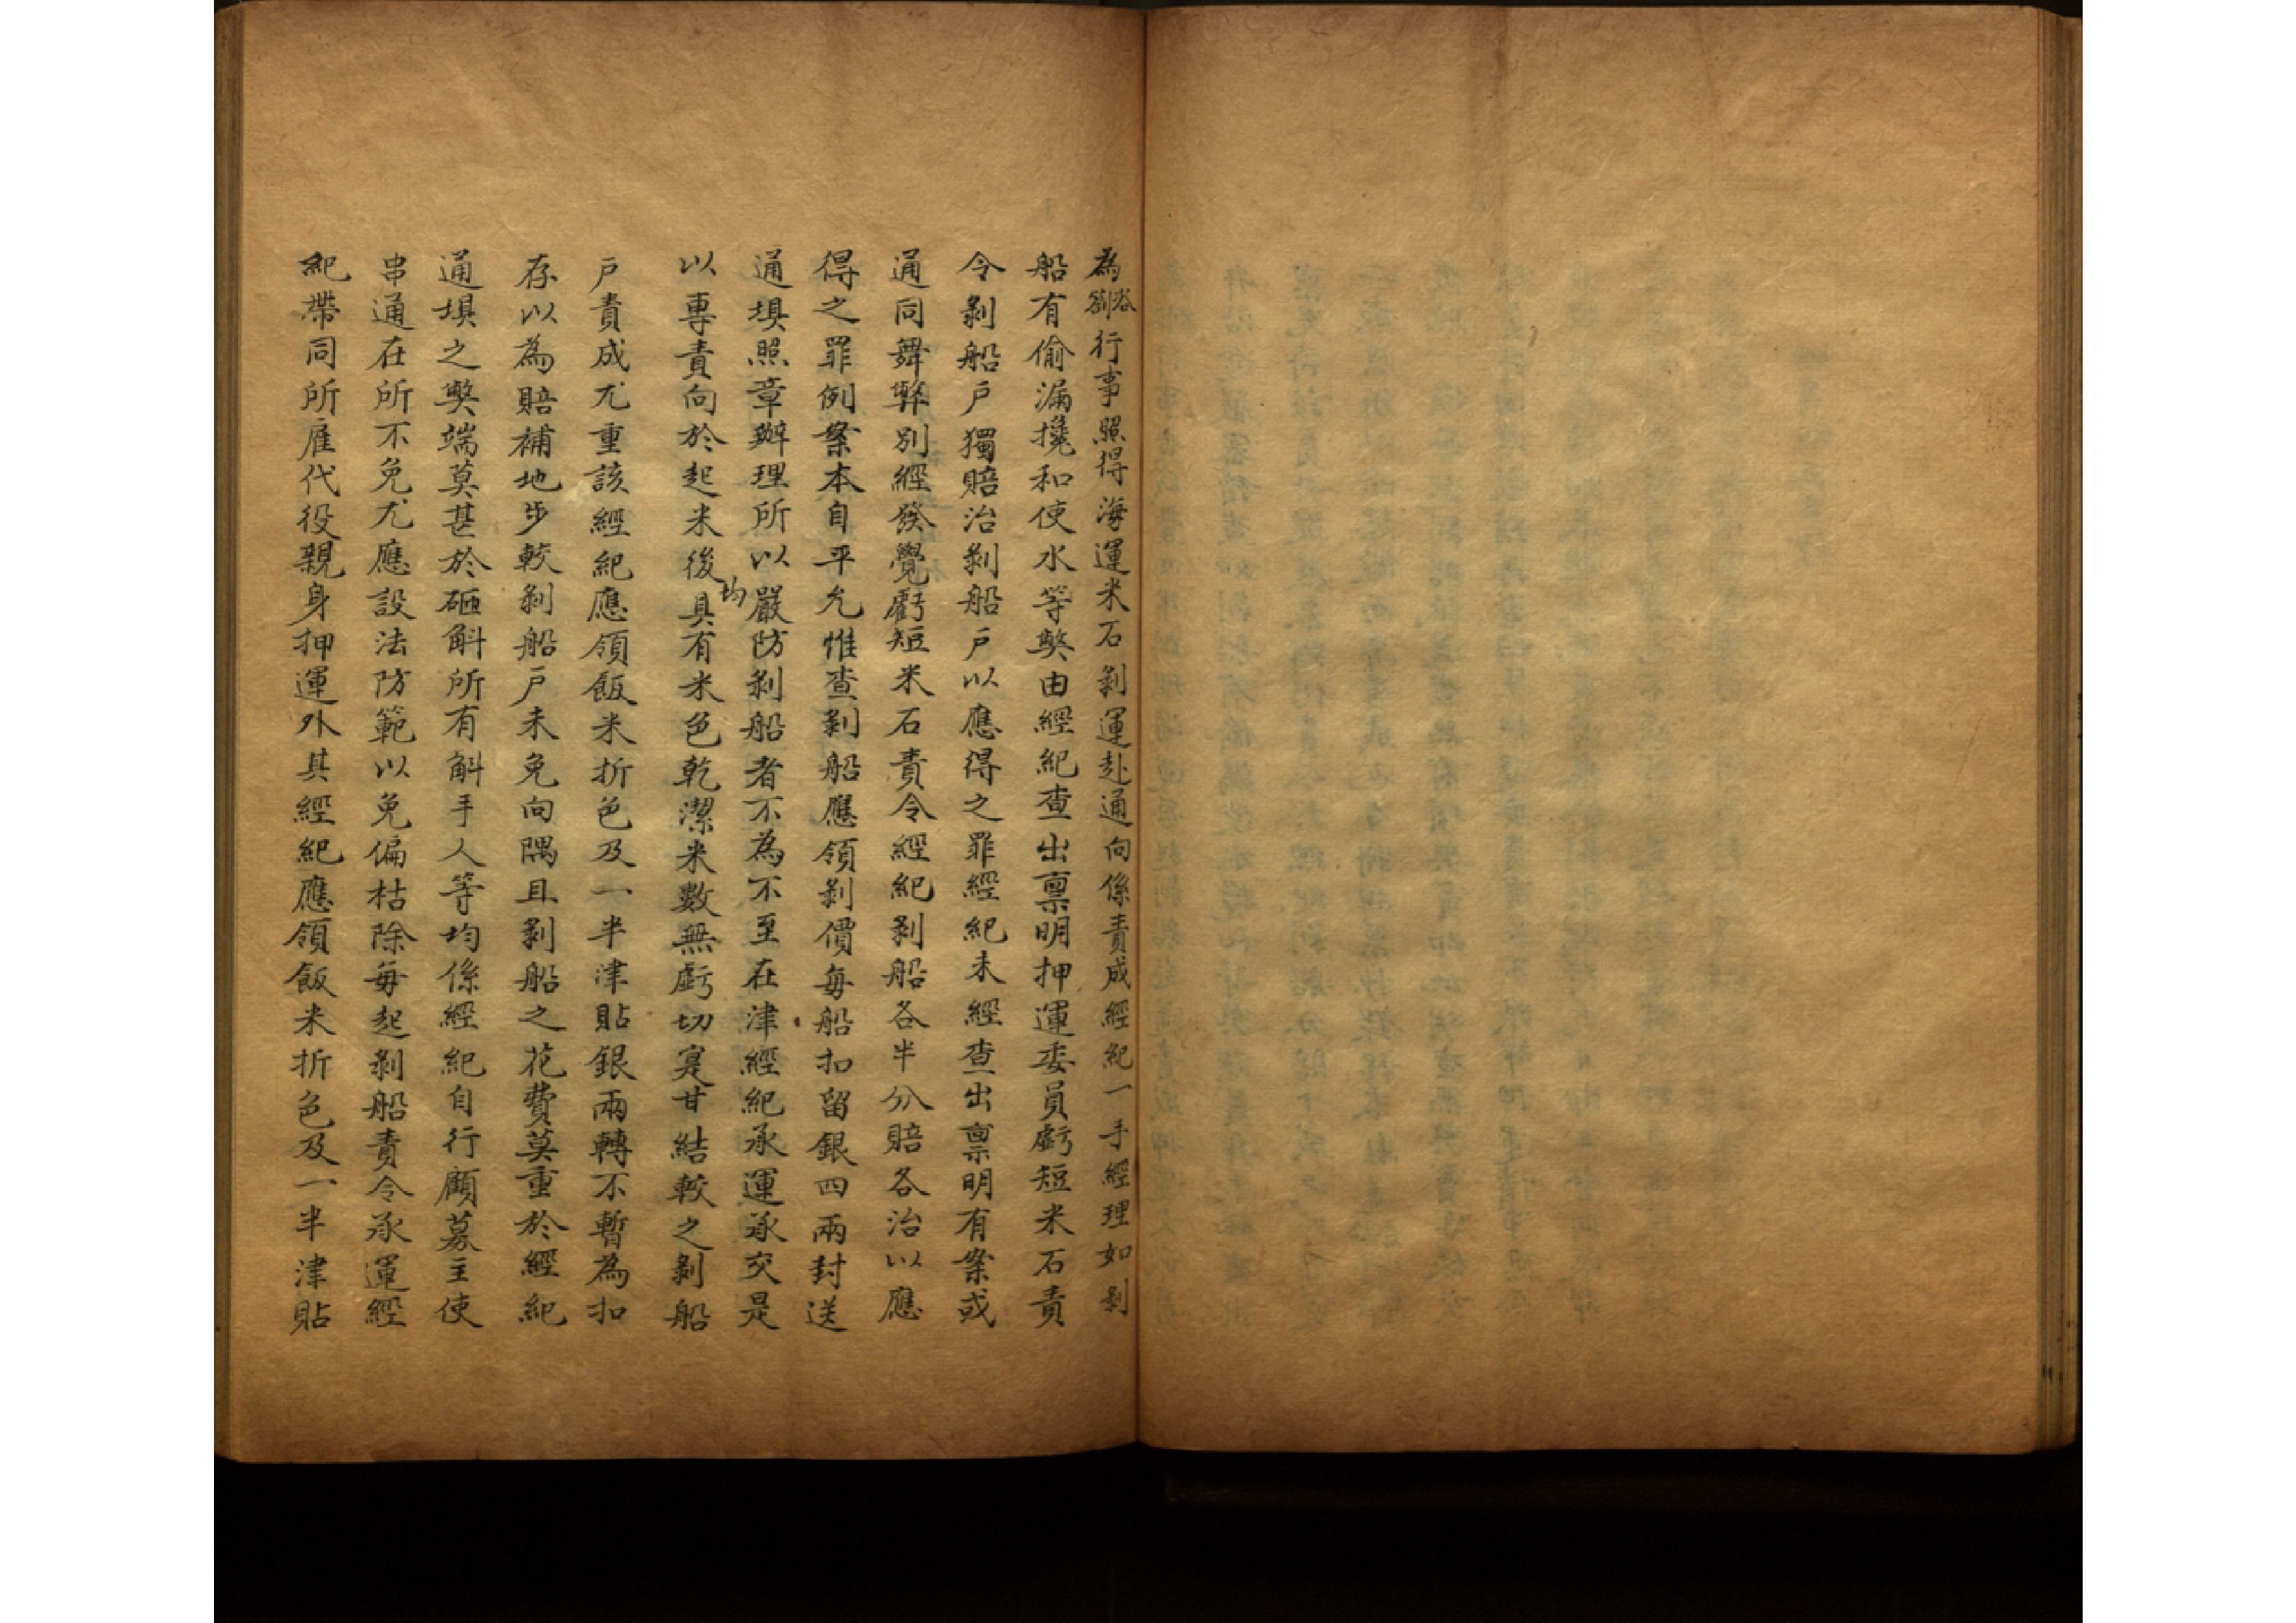 為咨劄行事照得海運米石剝運赴通向係責成經紀一手經理如剝
船有偷漏攙和使水等獘由經紀查出禀明押運委員虧短米石責
令剝船戶獨賠治剝船戶以應得之罪經紀未經查出禀明有案或
通同舞弊別經發覺虧短米石責令經紀剝船各半分賠各治以應
得之罪例案本自平允惟查剝船應領剝價每船扣留銀四兩封送
通埧照章辦理所以嚴防剝船者不為不至在津經紀承運承交是
以專責向於起米後均具有米色乾潔米數無虧切寔甘結較之剝船
戶責成尤重該經紀應領飯米折色及一半津貼銀兩轉不暫為扣
存以為賠補地步較剝船戶未免向隅且剝船之花費莫重於經紀
通埧之獘端莫甚於砸斛所有斛手人等均係經紀自行顧募主使
串通在所不免尤應設法防範以免偏枯除每起剝船責令承運經
紀帶同所雇代役親身押運外其經紀應領飯米折色及一半津貼